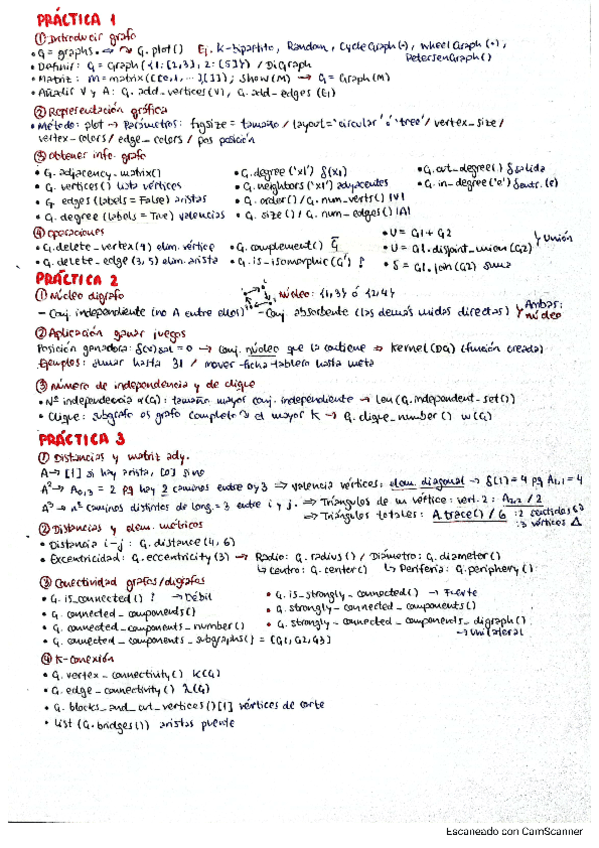 PRÁCTICA 1
① Introducir grafo
• G = graphs. G.plot() Ej. K-bipartito, Random, CycleGraph(·), WheelGraph(·), PetersenGraph()
• Definir: G = Graph({1:[2,3], 2:[5]}) / DiGraph
• Matriz: M = matrix([[0,1,...][]]); show(M) → G = Graph(M)
• Añadir V y A: G.add_vertices(V), G.add-edges(E)
② Representación gráfica
• Método: plot → Parámetros: figsize = tamaño / layout = 'circular' ó 'tree' / vertex_size /
vertex-colors / edge_colors / pos posición
③ Obtener info. grafo
• G.adjacency_matrix() • G.degree('x1') δ(x1) • G.out_degree() δsalida
• G.vertices() lista vértices • G.neighbors('x1') adyacentes • G.in_degree('e') δentr.(e)
• G.edges(labels = False) aristas • G.order() / G.num_verts() |V|
• G.degree(labels = True) valencias • G.size() / G.num_edges() |A|
④ Operaciones
• G.delete_vertex(9) elim. vértice • G.complement() G̅ • U = G1 + G2
• G.delete-edge(3,5) elim. arista • G.is-isomorphic(G') ? • U = G1.disjoint_union(G2) Unión
• S = G1.join(G2) suma
PRÁCTICA 2
① Núcleo digrafo Núcleo: {1,3} ó {2,4}
- Conj. independiente (no A entre ellos) - Conj. absorbente (las demás unidas directas) Ambas: núcleo
② Aplicación ganar juegos
Posición ganadora: δ(v)sal = 0 → Conj. núcleo que la contiene → Kernel(DG) (función creada)
Ejemplos: sumar hasta 31 / mover-ficha-tablero hasta meta
③ Número de independencia y de clique
• Nº independencia α(G): tamaño mayor conj. independiente → len(G.independent-set())
• Clique: subgrafo es grafo completo el mayor K → G.clique_number() w(G)
PRÁCTICA 3
① Distancias y matriz ady.
A → [1] si hay arista, [0] si no
A² → A0,3 = 2 pq hay 2 caminos entre 0 y 3 ⇒ valencia vértices: elem. diagonal → δ(1) = 4 pq A1,1 = 4
A³ → nº caminos distintos de long. = 3 entre i y j. ⇒ Triángulos de un vértice: vert. 2: A2,2 / 2
⇒ Triángulos totales: A.trace() / 6 :2 sentidos
:3 vértices Δ
② Distancias y elem. métricos
• Distancia i-j: G.distance(4,6)
• Excentricidad: G.eccentricity(3) → Radio: G.radius() / Diámetro: G.diameter()
↳ Centro: G.center() ↳ Periferia: G.periphery()
③ Conectividad grafos/digrafos
• G.is_connected() ? → Débil • G.is_strongly-connected() → Fuerte
• G.connected_components() • G.strongly-connected_components()
• G.connected_components_number() • G.strongly-connected_components_digraph()
• G.connected_components_subgraphs() = [G1, G2, G3] → Unilateral
④ K-conexión
• G.vertex-connectivity() K(G)
• G.edge_connectivity() λ(G)
• G.blocks_and_cut_vertices()[1] vértices de corte
• list(G.bridges()) aristas puente
Escaneado con CamScanner